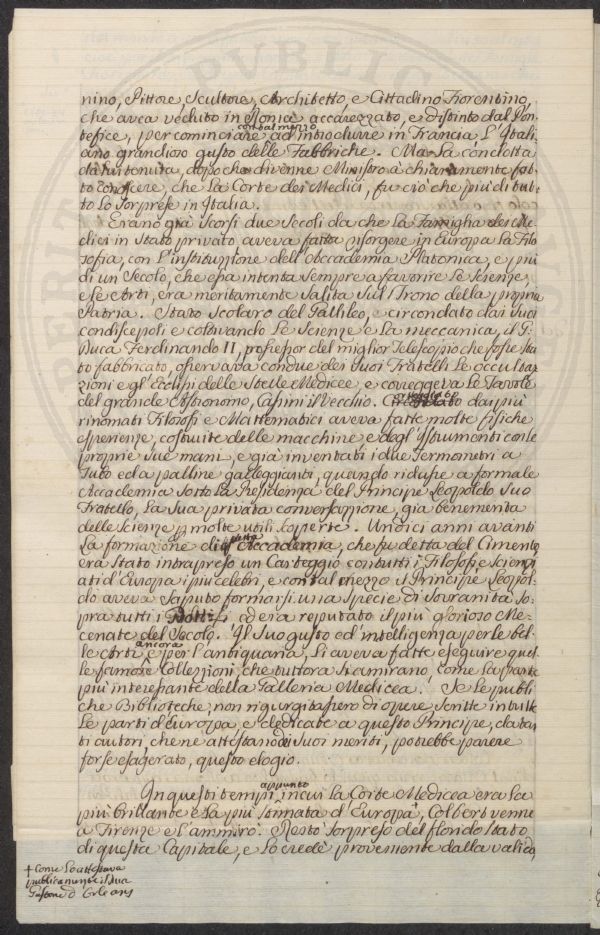 nino, Pittore, Scultore, Architetto, e Cittadino Fiorentino,
che avea veduto in Roma accarezzato, e distinto dal Pon-
tefice, per cominciare con tal mezzo ad introdurre in Francia, l'Itali-
ano grandioso gusto delle Fabbriche. Ma la condotta
da lui tenuta, dopo che divenne Ministro à chiaramente fat-
to conoscere, che la Corte dei Medici, fu ciò che più di tut-
to lo sorprese in Italia.
Erano già scorsi due Secoli da che la Famiglia dei Me-
dici in Stato privato, aveva fatta risorgere in Europa la Filo-
sofia, con l'instituzione dell'Accademia Platonica, e più
di un Secolo, che essa intenta sempre a favorire le Scienze,
e le Arti, era meritamente salita sul Trono della propria
Patria. Stato Scolaro del Gallileo, e circondato dai suoi
condiscepoli e coltivando le Scienze e la meccanica, il G.
Duca Ferdinando II, possessor del miglior Telescopio che fosse sta-
to fabbricato, osservava con due dei suoi Fratelli le occulta-
zioni e gl'Ecclissi delle Stelle Medicee, e correggeva le Tavole
del grande Astronomo, Cassini il Vecchio. dai più
rinomati Filosofi e Mattematici aveva fatte molte fisiche
esperienze, costruite delle macchine, e degl'Istrumenti con le
proprie sue mani, e già inventati i due Termometri a
Tubo ed a palline galleggianti, quando ridusse a formale
Accademia sotto la Presidenza del Principe Leopoldo suo
Fratello, la sua privata conversazione, già benemerita
delle Scienze p molte utili scoperte. Undici anni avanti
la formazione di questa Accademia, che fu detta del Cimento,
era stato intrapreso un Carteggio con tutti i Filosofi e Scienzi-
ati d'Europa i più celebri, e con tal mezzo il Principe Leopol-
do aveva saputo formarsi una specie di Souranità so-
pra tutti i Dotti ed era reputato il più glorioso Me-
cenate del Secolo. Il suo gusto ed'intelligenza per le bel-
le Arti e ancora per l'antiquaria, li aveva fatte eseguire quel-
le famose Collezzioni, che tuttora si amirano, come la parte
più interessante della Galleria Medicea. Se le publi-
che Biblioteche, non rigurgitassero di opere scritte in tutte
le parti d'Europa e dedicate a questo Principe, da tan-
ti autori, che ne attestano i di suoi meriti, potrebbe parere
forse esagerato, questo elogio.
In questi tempi appunto in cui la Corte Medicea era la
più brillante e la più stimata d'Europa, Colbert venne
a Firenze e l'ammirò. Restò sorpreso del florido stato
di questa Capitale, e lo crede proveniente dalla valida
+ Come lo attestava
publicamente il Duca
Gastone d'Orleans